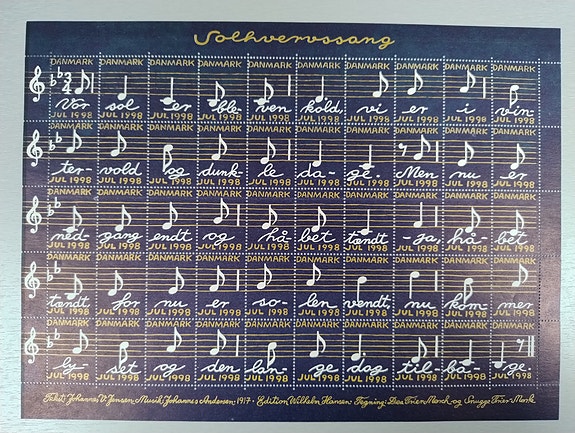 Solhvervssang
DANMARK DANMARK DANMARK DANMARK DANMARK DANMARK DANMARK DANMARK DANMARK DANMARK
3
4
Vor sol er ble- ven kold, vi er i vin-
JUL 1998 JUL 1998 JUL 1998 JUL 1998 JUL 1998 JUL 1998 JUL 1998 JUL 1998 JUL 1998 JUL 1998
DANMARK DANMARK DANMARK DANMARK DANMARK DANMARK DANMARK DANMARK DANMARK DANMARK
ter vold og dunk- le da- ge. Men nu er
JUL 1998 JUL 1998 JUL 1998 JUL 1998 JUL 1998 JUL 1998 JUL 1998 JUL 1998 JUL 1998 JUL 1998
DANMARK DANMARK DANMARK DANMARK DANMARK DANMARK DANMARK DANMARK DANMARK DANMARK
ned- gang endt og hå- bet tændt - ja, hå- bet
JUL 1998 JUL 1998 JUL 1998 JUL 1998 JUL 1998 JUL 1998 JUL 1998 JUL 1998 JUL 1998 JUL 1998
DANMARK DANMARK DANMARK DANMARK DANMARK DANMARK DANMARK DANMARK DANMARK DANMARK
tændt, for nu er so- len vendt, nu kom- mer
JUL 1998 JUL 1998 JUL 1998 JUL 1998 JUL 1998 JUL 1998 JUL 1998 JUL 1998 JUL 1998 JUL 1998
DANMARK DANMARK DANMARK DANMARK DANMARK DANMARK DANMARK DANMARK DANMARK DANMARK
ly- set og den lan- ge dag til- ba- ge.
JUL 1998 JUL 1998 JUL 1998 JUL 1998 JUL 1998 JUL 1998 JUL 1998 JUL 1998 JUL 1998 JUL 1998
Tekst: Johannes V. Jensen. Musik: Johannes Andersen · 1917 · Edition Wilhelm Hansen. Tegning: Dea Trier Mørch og Snugge Trier Mørch